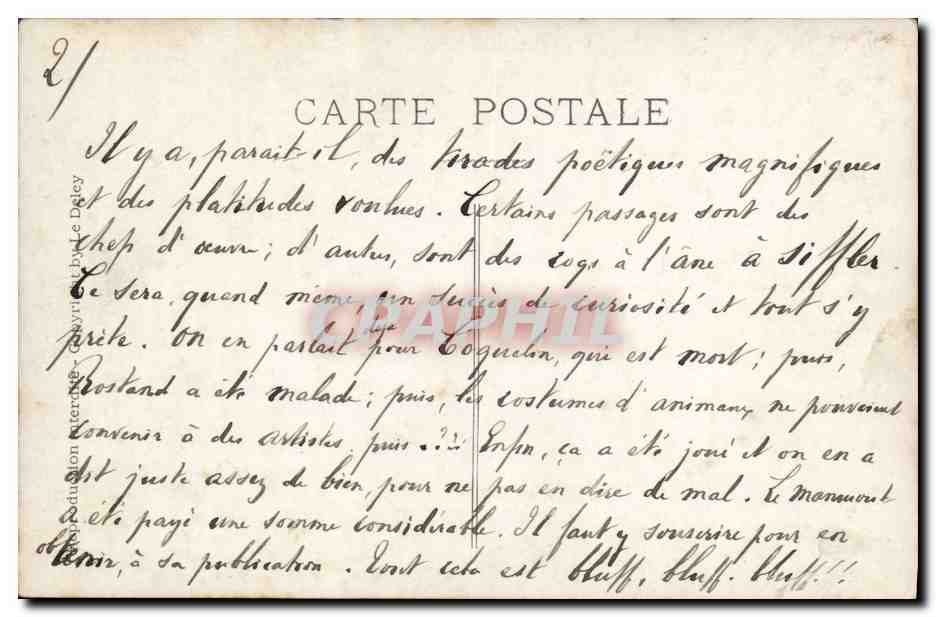 2/
CARTE POSTALE
Il y a, parait-il, des tirades poëtiques magnifiques
et des platitudes voulues. Certains passages sont des
chefs d'œuvre; d'autres, sont des coqs à l'âne à siffler.
Ce sera, quand même, un succès de curiosité et tout s'y
prête. On en parlait déjà pour Coquelin, qui est mort; puis,
Rostand a été malade; puis, les costumes d'animaux ne pouvaient
convenir à des artistes, puis ..?? Enfin, ça a été joué et on en a
dit juste assez de bien, pour ne pas en dire de mal. Le Manuscrit
a été payé une somme considérable. Il faut y souscrire pour en
obtenir, à sa publication. Tout cela est bluff, bluff. bluff!!!
Reproduction interdite - Copyright by Le Deley
CPAPHIL